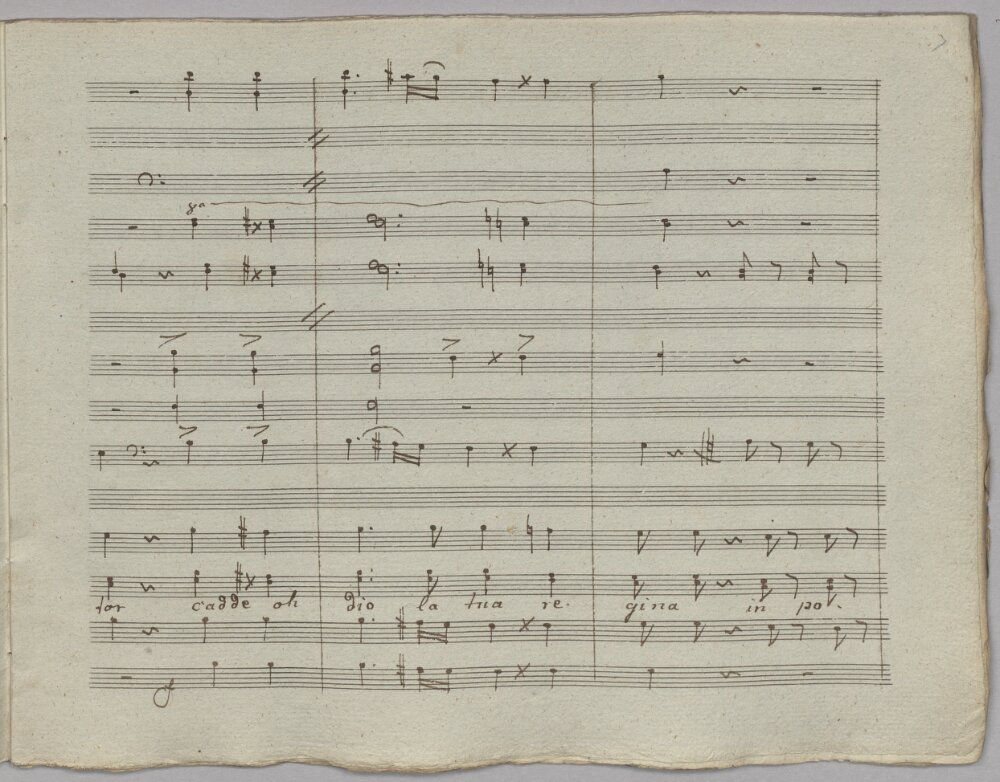 8va
tor cadde oh dio la tua re. gina in po.
f